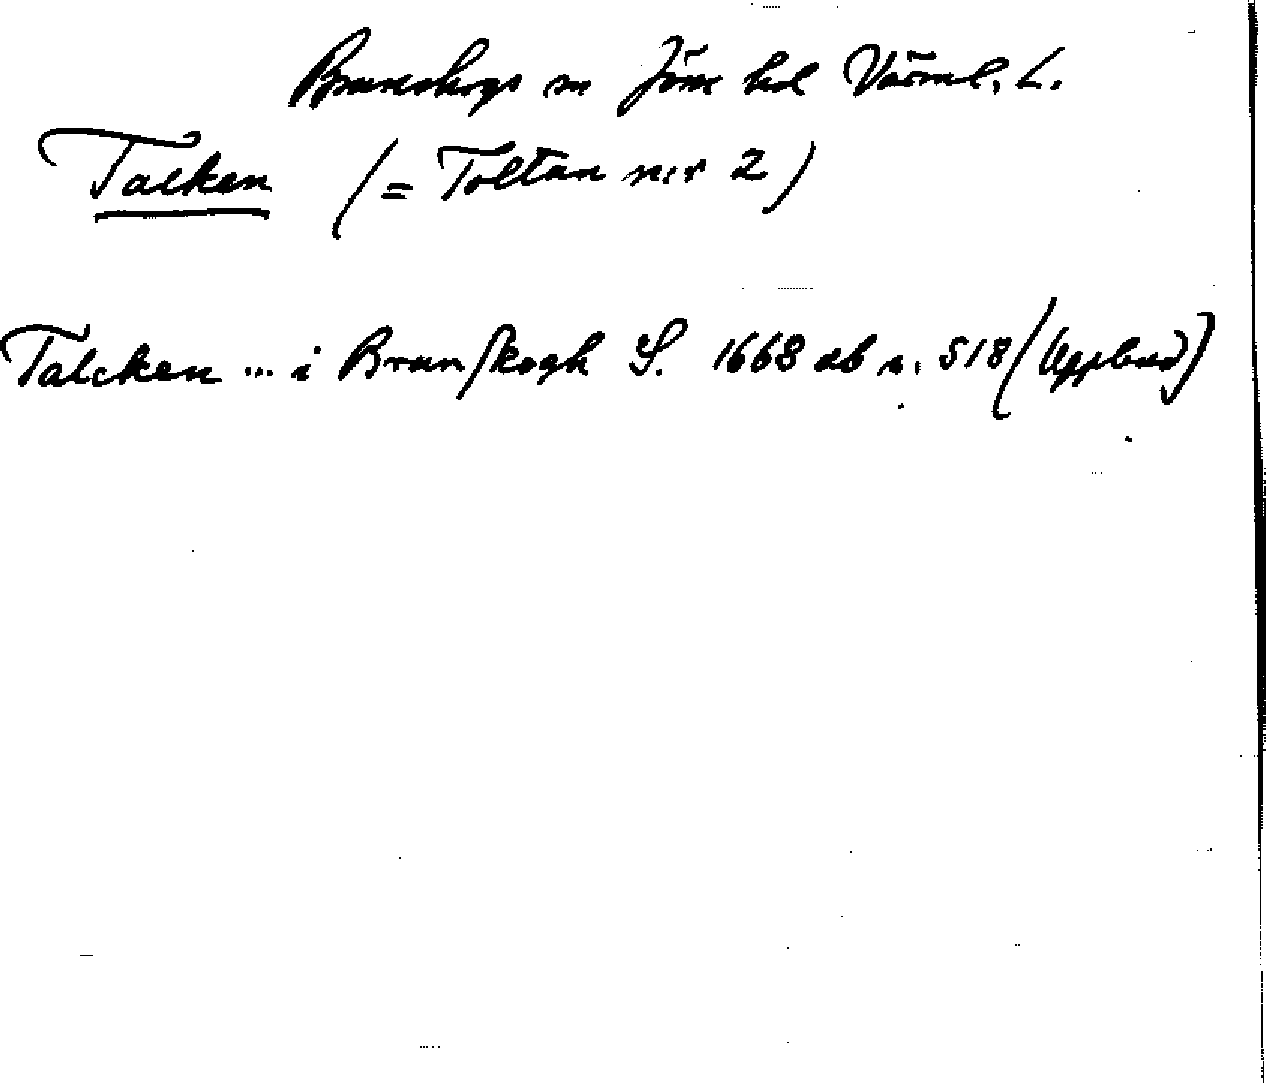 Brunskogs sn Jösse hd Värml. L.
Talken (= Toltan nr 2)
Talcken ... i Brunskogh S. 1668 db s. 518 (Uppbud)